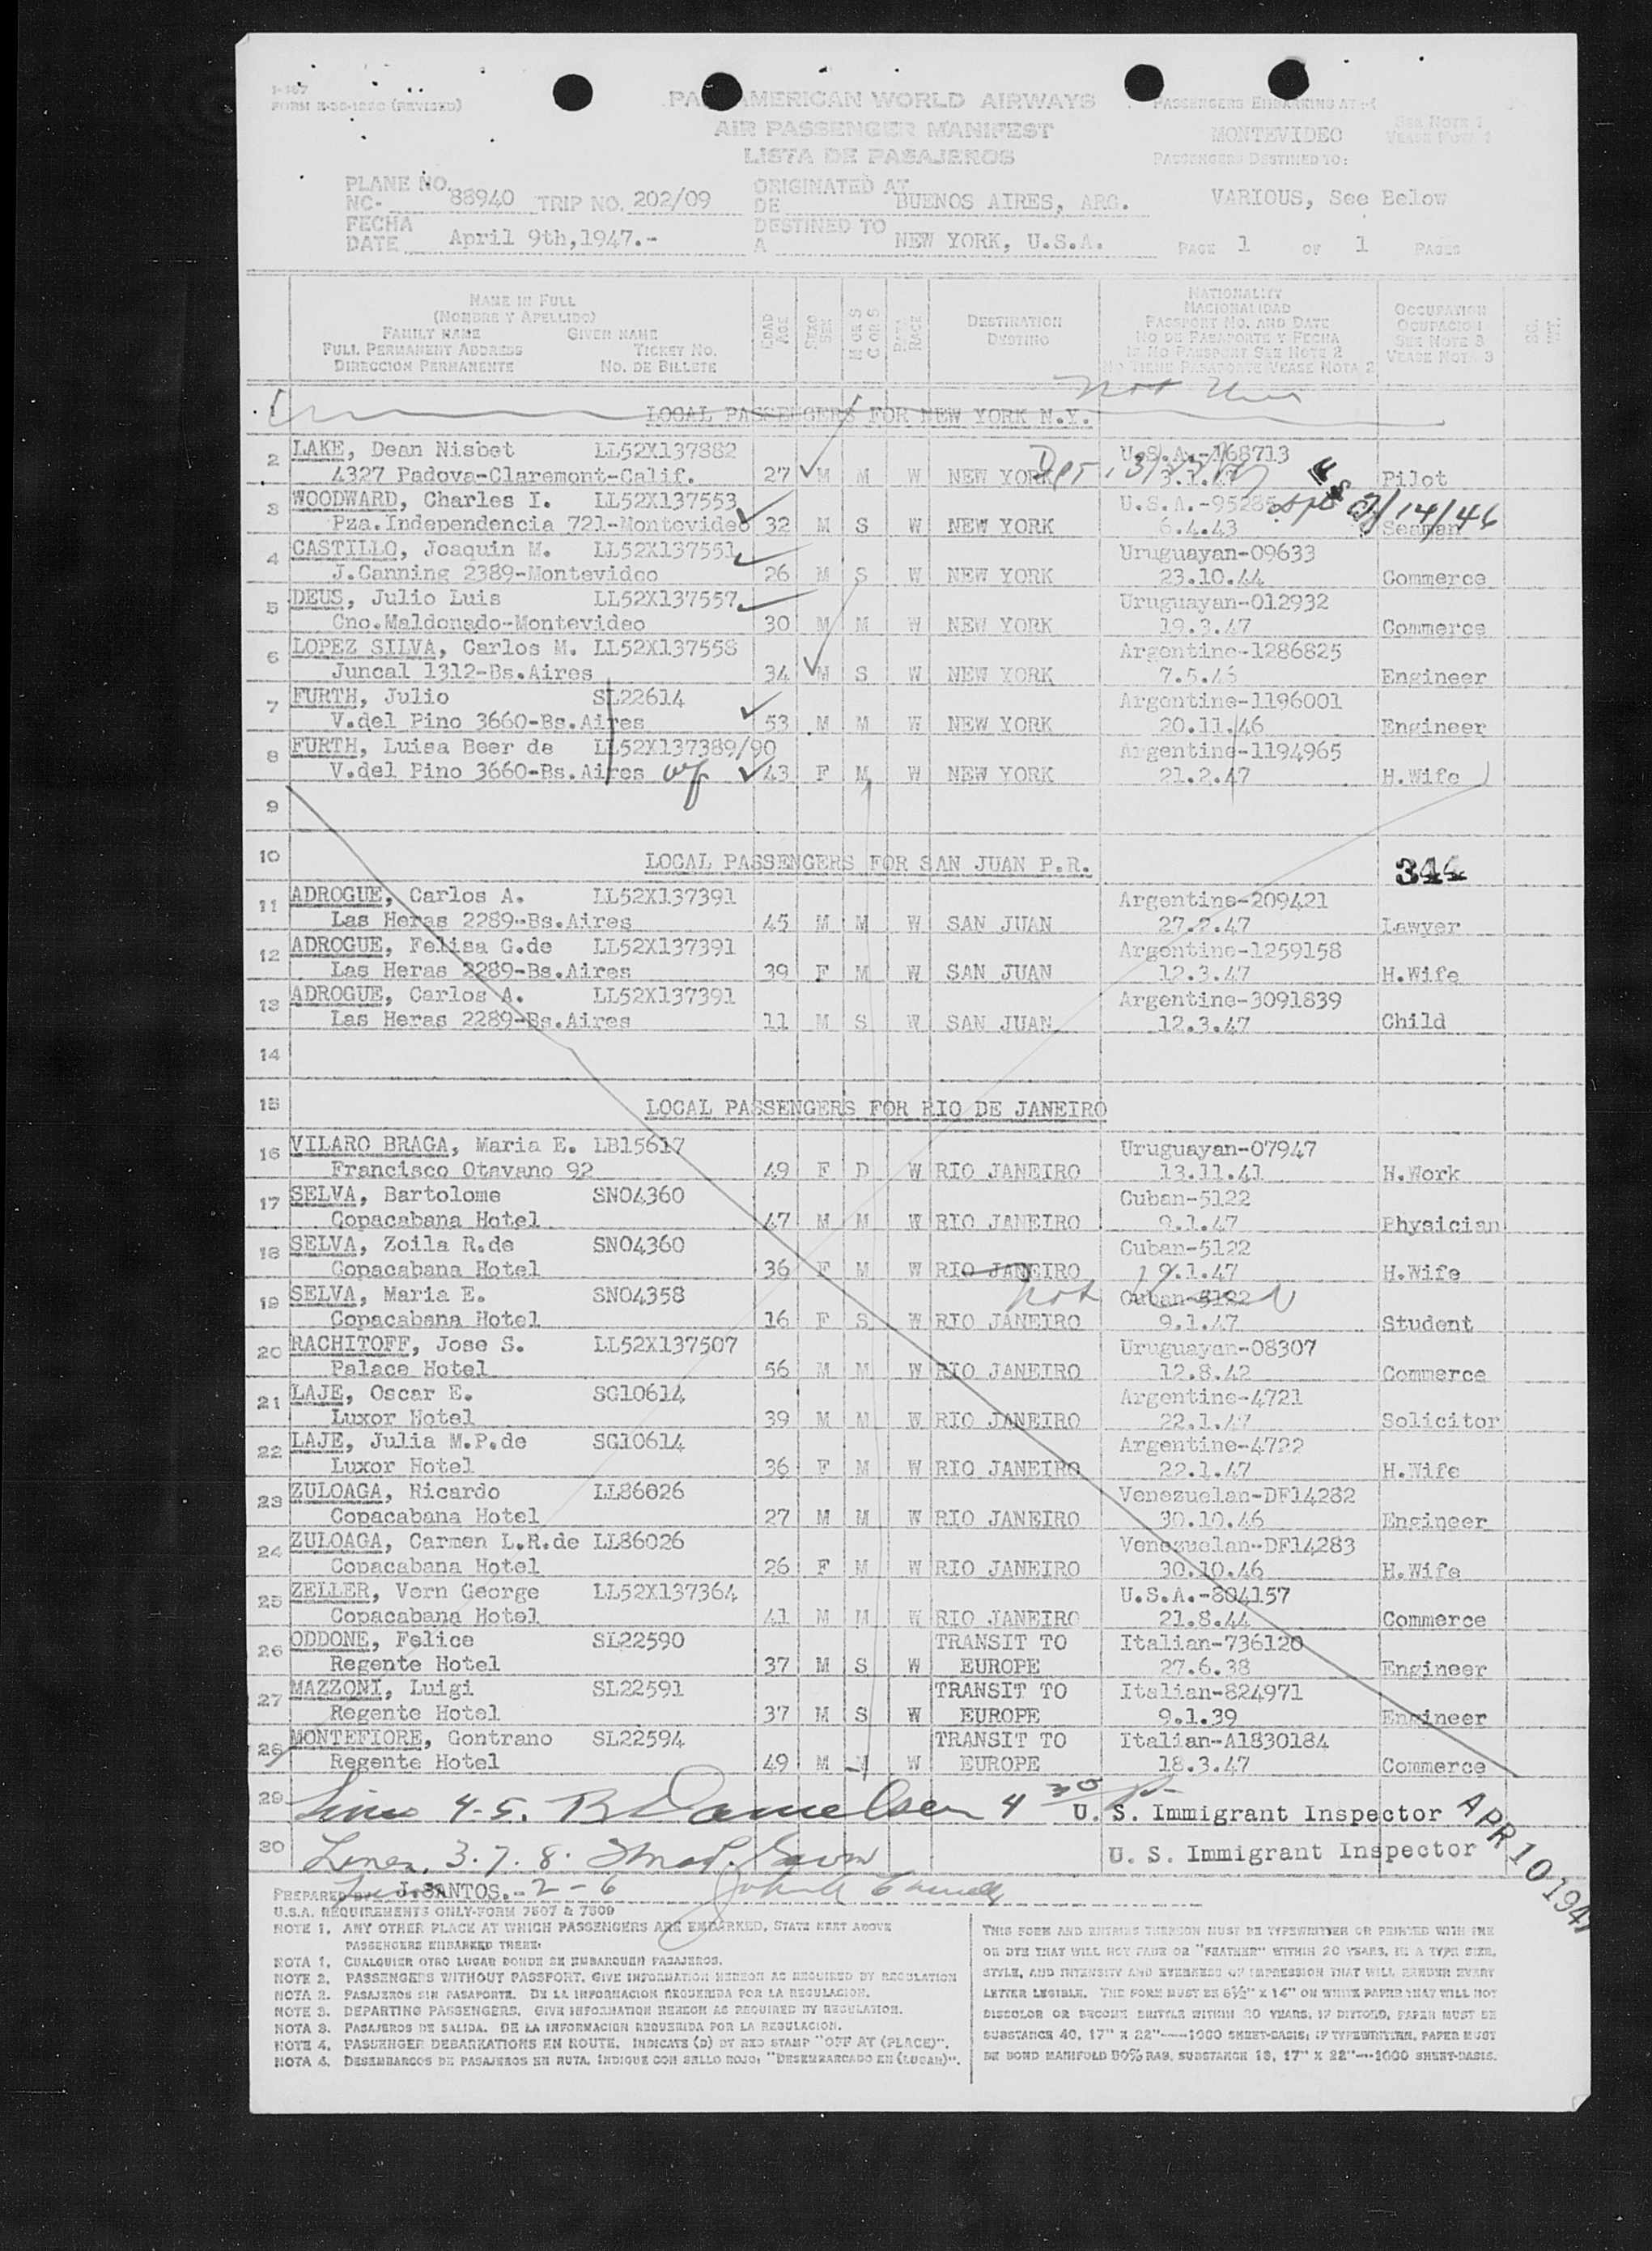 1-107
FORM (REVISED)
PAN AMERICAN WORLD AIRWAYS
AIR PASSENGER MANIFEST
LISTA DE PASAJEROS
PASSENGERS EMBARKING AT:
SEE NOTE 1
VEASE NOTA 1
MONTEVIDEO
PASSENGERS DESTINED TO:
VARIOUS, See Below
PLANE NO.
NC- 88940 TRIP NO. 202/09
ORIGINATED AT
DE BUENOS AIRES, ARG.
FECHA
DATE April 9th,1947.-
DESTINED TO
A NEW YORK, U.S.A.
PAGE 1 OF 1 PAGES
NAME IN FULL
(NOMBRE Y APELLIDO)
FAMILY NAME GIVEN NAME
FULL PERMANENT ADDRESS TICKET NO.
DIRECCION PERMANENTE NO. DE BILLETE
EDAD
AGE
SEXO
SEX
M OR S
C OR S
RAZA
RACE
DESTINATION
DESTINO
NATIONALITY
NACIONALIDAD
PASSPORT NO. AND DATE
NO DE PASAPORTE Y FECHA
IF NO PASSPORT SEE NOTE 2
NO TIENE PASAPORTE VEASE NOTA 2
OCCUPATION
OCUPACION
SEE NOTE 3
VEASE NOTA 3
1 LOCAL PASSENGERS FOR NEW YORK N.Y.
2 LAKE, Dean Nisbet LL52X137882 U.S.A.-168713
4327 Padova-Claremont-Calif. 27 M M W NEW YORK Pilot
3 WOODWARD, Charles I. LL52X137553 U.S.A.-95285
Pza.Independencia 721-Montevideo 32 M S W NEW YORK 6.4.43 Seaman
2/14/46
4 CASTILLO, Joaquin M. LL52X137551 Uruguayan-09633
J.Canning 2389-Montevideo 26 M S W NEW YORK 23.10.44 Commerce
5 DEUS, Julio Luis LL52X137557 Uruguayan-012932
Cno.Maldonado-Montevideo 30 M M W NEW YORK 19.3.47 Commerce
6 LOPEZ SILVA, Carlos M. LL52X137558 Argentine-1286825
Juncal 1312-Bs.Aires 34 M S W NEW YORK Engineer
7 FURTH, Julio SL22614 Argentine-1196001
V.del Pino 3660-Bs.Aires 53 M M W NEW YORK 20.11.46 Engineer
8 FURTH, Luisa Beer de LL52X137389/90 Argentine-1194965
V.del Pino 3660-Bs.Aires wf 43 F M W NEW YORK 21.2.47 H.Wife
9
10 LOCAL PASSENGERS FOR SAN JUAN P.R. 344
11 ADROGUE, Carlos A. LL52X137391 Argentine-209421
Las Heras 2289-Bs.Aires 45 M M W SAN JUAN 27.2.47 Lawyer
12 ADROGUE, Felisa G.de LL52X137391 Argentine-1259158
Las Heras 2289-Bs.Aires 39 F M W SAN JUAN 12.3.47 H.Wife
13 ADROGUE, Carlos A. LL52X137391 Argentine-3091839
Las Heras 2289-Bs.Aires 11 M S W SAN JUAN 12.3.47 Child
14
15 LOCAL PASSENGERS FOR RIO DE JANEIRO
16 VILARO BRAGA, Maria E. LB15617 Uruguayan-07947
Francisco Otavano 92 49 F D W RIO JANEIRO 13.11.41 H.Work
17 SELVA, Bartolome SN04360 Cuban-5122
Copacabana Hotel 47 M M W RIO JANEIRO 9.1.47 Physician
18 SELVA, Zoila R.de SN04360 Cuban-5122
Copacabana Hotel 36 F M W RIO JANEIRO 9.1.47 H.Wife
19 SELVA, Maria E. SN04358 Cuban-5122
Copacabana Hotel 16 F S W RIO JANEIRO 9.1.47 Student
20 RACHITOFF, Jose S. LL52X137507 Uruguayan-08307
Palace Hotel 56 M M W RIO JANEIRO 12.8.42 Commerce
21 LAJE, Oscar E. SG10614 Argentine-4721
Luxor Hotel 39 M M W RIO JANEIRO 22.1.47 Solicitor
22 LAJE, Julia M.P.de SG10614 Argentine-4722
Luxor Hotel 36 F M W RIO JANEIRO 22.1.47 H.Wife
23 ZULOAGA, Ricardo LL86026 Venezuelan-DF14282
Copacabana Hotel 27 M M W RIO JANEIRO 30.10.46 Engineer
24 ZULOAGA, Carmen L.R.de LL86026 Venezuelan-DF14283
Copacabana Hotel 26 F M W RIO JANEIRO 30.10.46 H.Wife
25 ZELLER, Vern George LL52X137364 U.S.A.-804157
Copacabana Hotel 41 M M W RIO JANEIRO 21.8.44 Commerce
26 ODDONE, Felice SL22590 TRANSIT TO Italian-736120
Regente Hotel 37 M S W EUROPE 27.6.38 Engineer
27 MAZZONI, Luigi SL22591 TRANSIT TO Italian-824971
Regente Hotel 37 M S W EUROPE 9.1.39 Engineer
28 MONTEFIORE, Gontrano SL22594 TRANSIT TO Italian-A1830184
Regente Hotel 49 M M W EUROPE 18.3.47 Commerce
29 Lines 4-5. U. S. Immigrant Inspector
APR 10 1947
30 Lines 3.7.8. U. S. Immigrant Inspector
PREPARED BY J.SANTOS.- 2-6
U.S.A. REQUIREMENTS ONLY-FORM 7507 & 7509
NOTE 1. ANY OTHER PLACE AT WHICH PASSENGERS ARE EMBARKED, STATE NEXT ABOVE
PASSENGERS EMBARKED THERE:
NOTA 1. CUALQUIER OTRO LUGAR DONDE SE EMBARQUEN PASAJEROS.
NOTE 2. PASSENGERS WITHOUT PASSPORT. GIVE INFORMATION HEREON AS REQUIRED BY REGULATION
NOTA 2. PASAJEROS SIN PASAPORTE. DE LA INFORMACION REQUERIDA POR LA REGULACION.
NOTE 3. DEPARTING PASSENGERS. GIVE INFORMATION HEREON AS REQUIRED BY REGULATION.
NOTA 3. PASAJEROS DE SALIDA. DE LA INFORMACION REQUERIDA POR LA REGULACION.
NOTE 4. PASSENGER DEBARKATIONS EN ROUTE. INDICATE (D) BY RED STAMP "OFF AT (PLACE)".
NOTA 4. DESEMBARCOS DE PASAJEROS EN RUTA. INDIQUE CON SELLO ROJO, "DESEMBARCADO EN (LUGAR)".
THIS FORM AND ENTRIES THEREON MUST BE TYPEWRITTEN OR PRINTED WITH INK
OR DYE THAT WILL NOT FADE OR "FEATHER" WITHIN 20 YEARS, IN A TYPE SIZE,
STYLE, AND INTENSITY AND EVENNESS OF IMPRESSION THAT WILL RENDER EVERY
LETTER LEGIBLE. THE FORM MUST BE 8½" X 14" ON WHITE PAPER THAT WILL NOT
DISCOLOR OR BECOME BRITTLE WITHIN 20 YEARS. IF DITTOED, PAPER MUST BE
SUBSTANCE 40, 17" X 22"—1000 SHEET-BASIS; IF TYPEWRITTEN, PAPER MUST
BE BOND MANIFOLD 50% RAG, SUBSTANCE 18, 17" X 22"—1000 SHEET-BASIS.